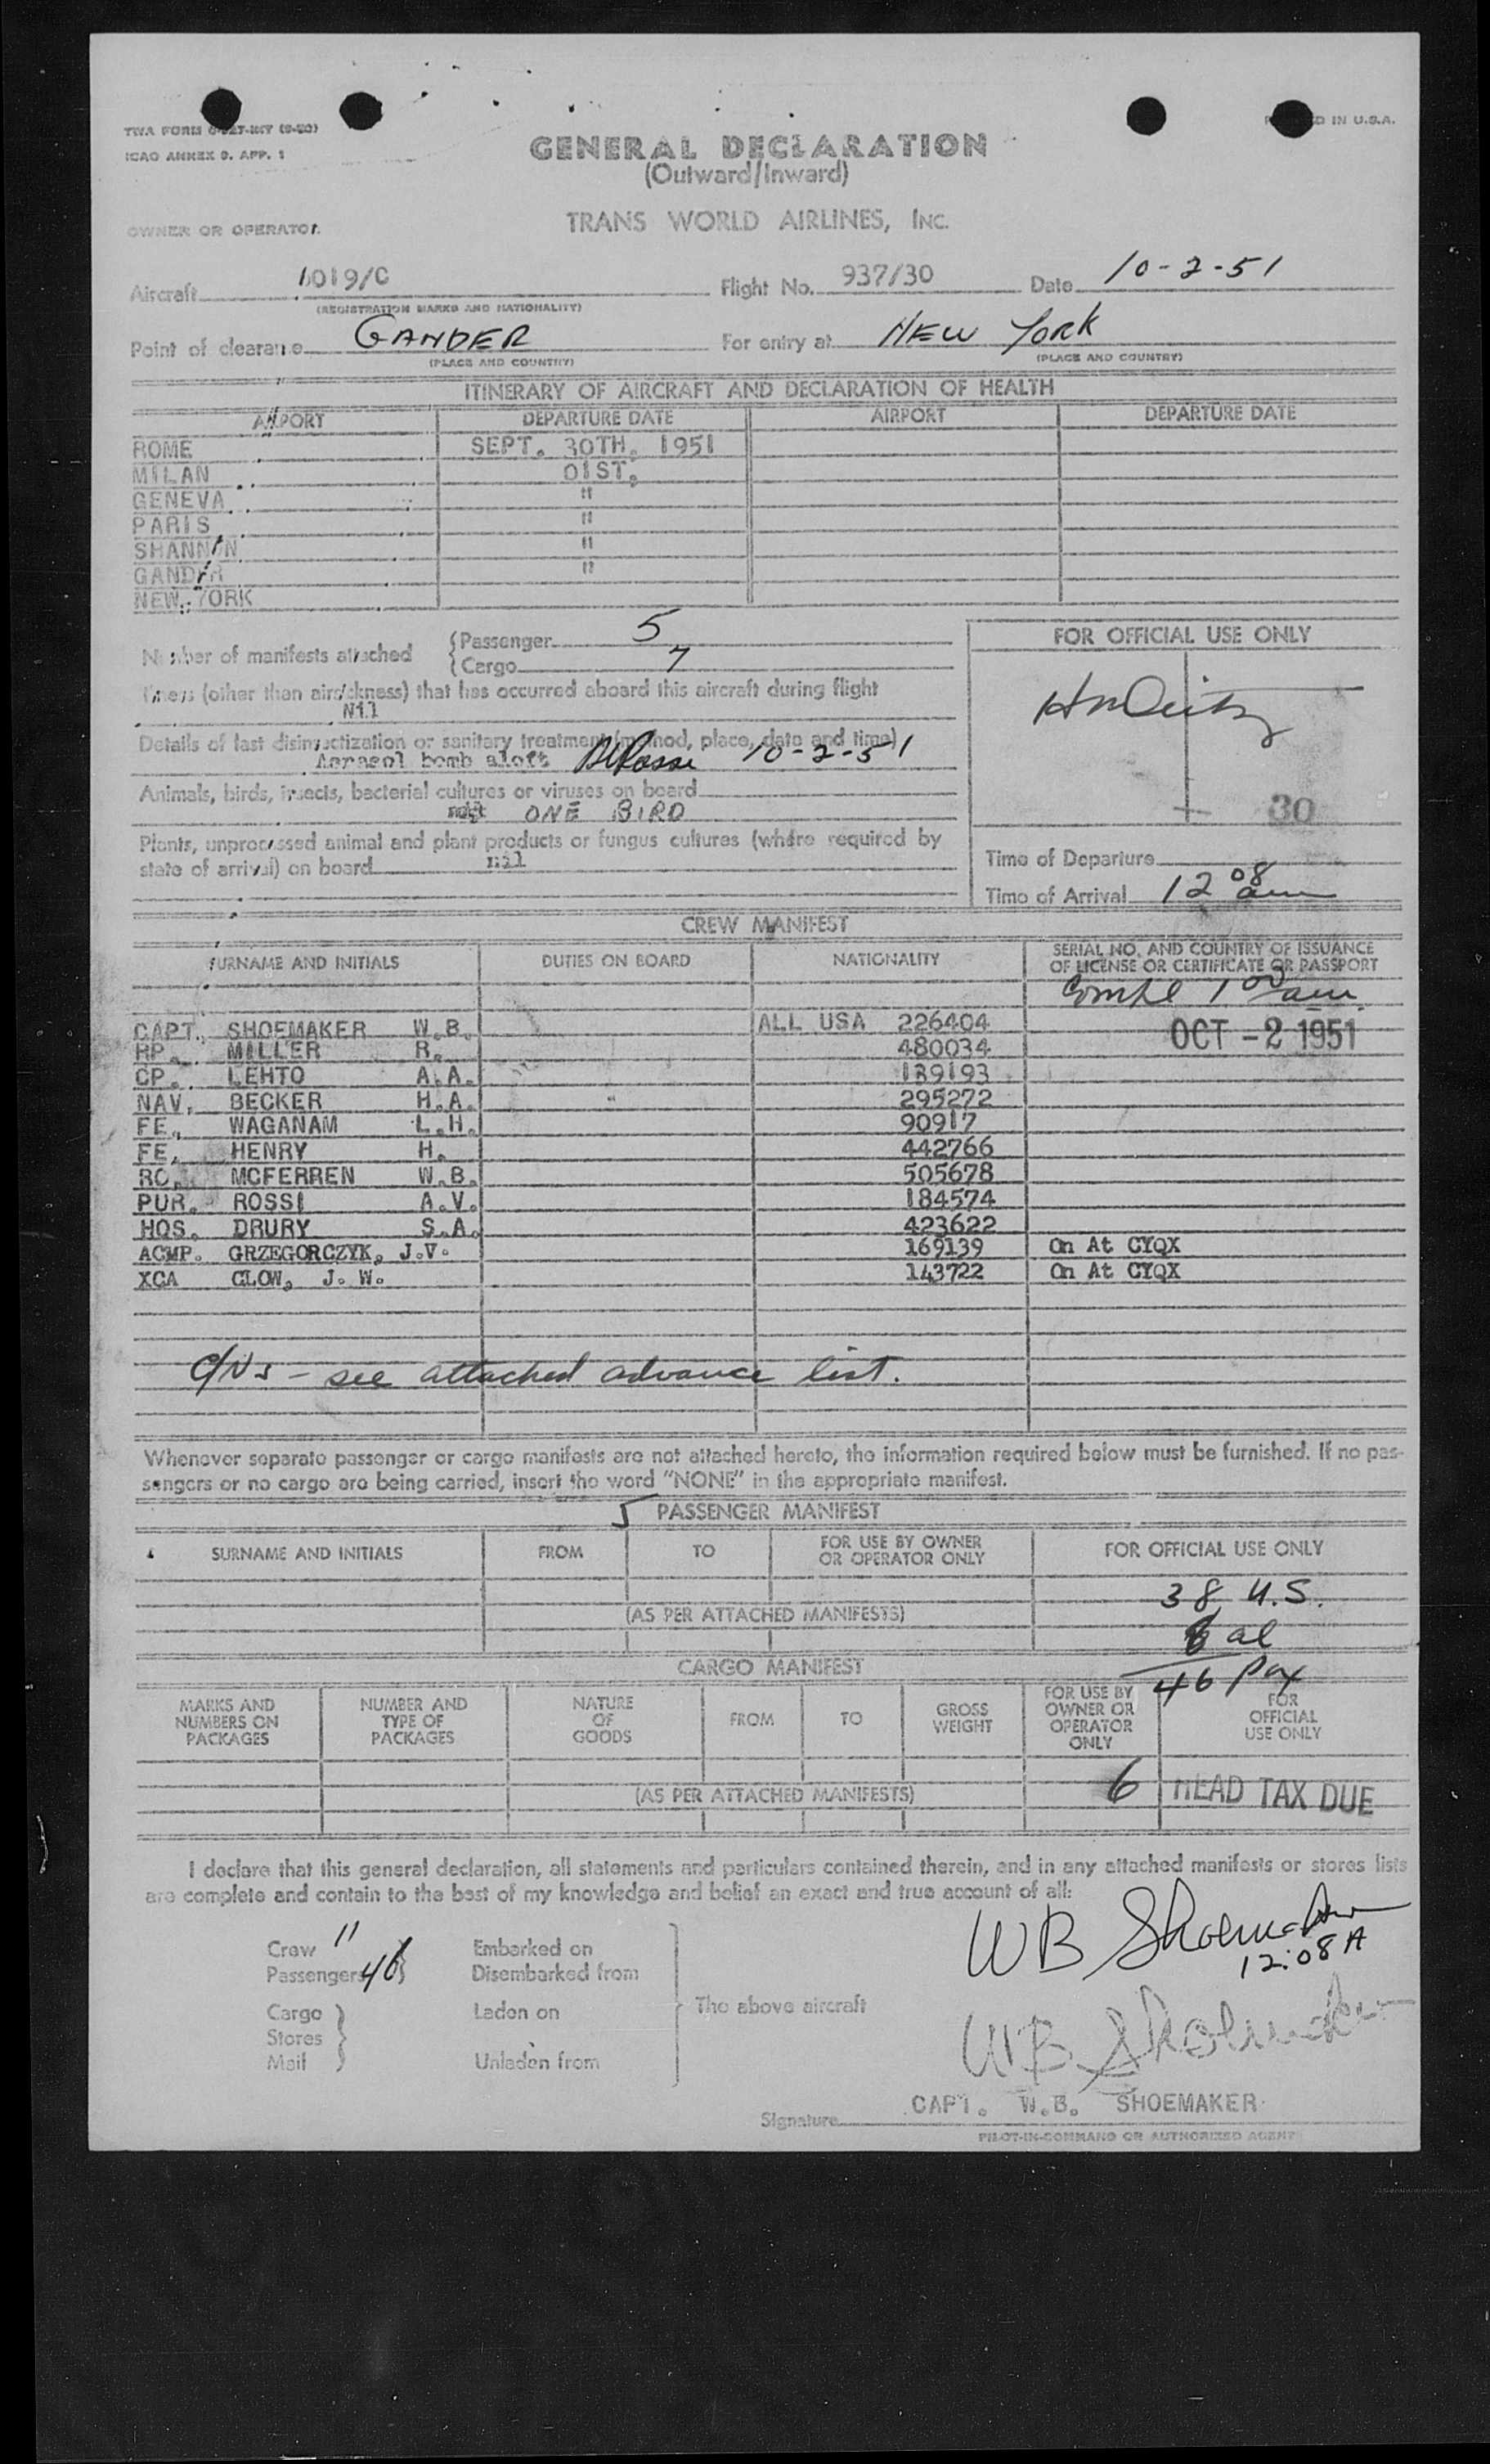 TWA FORM
ICAO ANNEX 9. APP. 1
IN U.S.A.
GENERAL DECLARATION
(Outward/Inward)
TRANS WORLD AIRLINES, INC.
OWNER OR OPERATOR
Aircraft 6019/C Flight No. 937/30 Date 10-2-51
(REGISTRATION MARKS AND NATIONALITY)
Point of clearance GANDER For entry at NEW YORK
(PLACE AND COUNTRY) (PLACE AND COUNTRY)
ITINERARY OF AIRCRAFT AND DECLARATION OF HEALTH
AIRPORT DEPARTURE DATE AIRPORT DEPARTURE DATE
ROME SEPT. 30TH, 1951
MILAN 01ST,
GENEVA "
PARIS "
SHANNON "
GANDER "
NEW YORK
Number of manifests attached {Passenger 5
{Cargo 7
FOR OFFICIAL USE ONLY
Illness (other than airsickness) that has occurred aboard this aircraft during flight
Nil
Details of last disinsectization or sanitary treatment (method, place, date and time)
Aerosol bomb aloft 10-2-51
Animals, birds, insects, bacterial cultures or viruses on board
nil ONE BIRD
30
Plants, unprocessed animal and plant products or fungus cultures (where required by
state of arrival) on board nil
Time of Departure
Time of Arrival 12 08 am
CREW MANIFEST
SURNAME AND INITIALS DUTIES ON BOARD NATIONALITY SERIAL NO. AND COUNTRY OF ISSUANCE
OF LICENSE OR CERTIFICATE OR PASSPORT
Compl 1 00 am
CAPT. SHOEMAKER W.B. ALL USA 226404 OCT -2 1951
RP. MILLER R. 480034
CP. LEHTO A.A. 139193
NAV. BECKER H.A. 295272
FE. WAGANAM L.H. 90917
FE. HENRY H. 442766
RO. MCFERREN W.B. 505678
PUR. ROSSI A.V. 184574
HOS. DRURY S.A. 423622
ACMP. GRZEGORCZYK, J.V. 169139 On At CYQX
XCA CLOW, J. W. 143722 On At CYQX
see attached advance list.
Whenever separate passenger or cargo manifests are not attached hereto, the information required below must be furnished. If no pas-
sengers or no cargo are being carried, insert the word "NONE" in the appropriate manifest.
5 PASSENGER MANIFEST
SURNAME AND INITIALS FROM TO FOR USE BY OWNER OR OPERATOR ONLY FOR OFFICIAL USE ONLY
38 U.S.
(AS PER ATTACHED MANIFESTS)
al
CARGO MANIFEST
46 pax
MARKS AND NUMBERS ON PACKAGES NUMBER AND TYPE OF PACKAGES NATURE OF GOODS FROM TO GROSS WEIGHT FOR USE BY OWNER OR OPERATOR ONLY FOR OFFICIAL USE ONLY
(AS PER ATTACHED MANIFESTS) 6 HEAD TAX DUE
I declare that this general declaration, all statements and particulars contained therein, and in any attached manifests or stores lists
are complete and contain to the best of my knowledge and belief an exact and true account of all:
WB Shoemaker
12:08 A
Crew 11 Embarked on
Passengers 46} Disembarked from
Cargo } Laden on The above aircraft
Stores
Mail Unladen from
WB Shoemaker
CAPT. W.B. SHOEMAKER
Signature
PILOT-IN-COMMAND OR AUTHORIZED AGENT